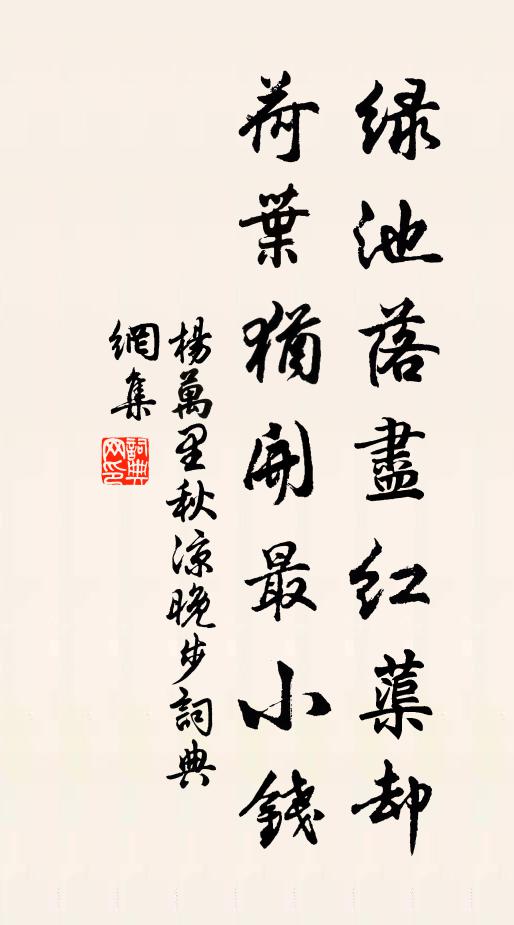 绿池落盡红蕖却
荷葉猶開最小錢
楊萬里秋凉晚步詞典
網集
詞典网印